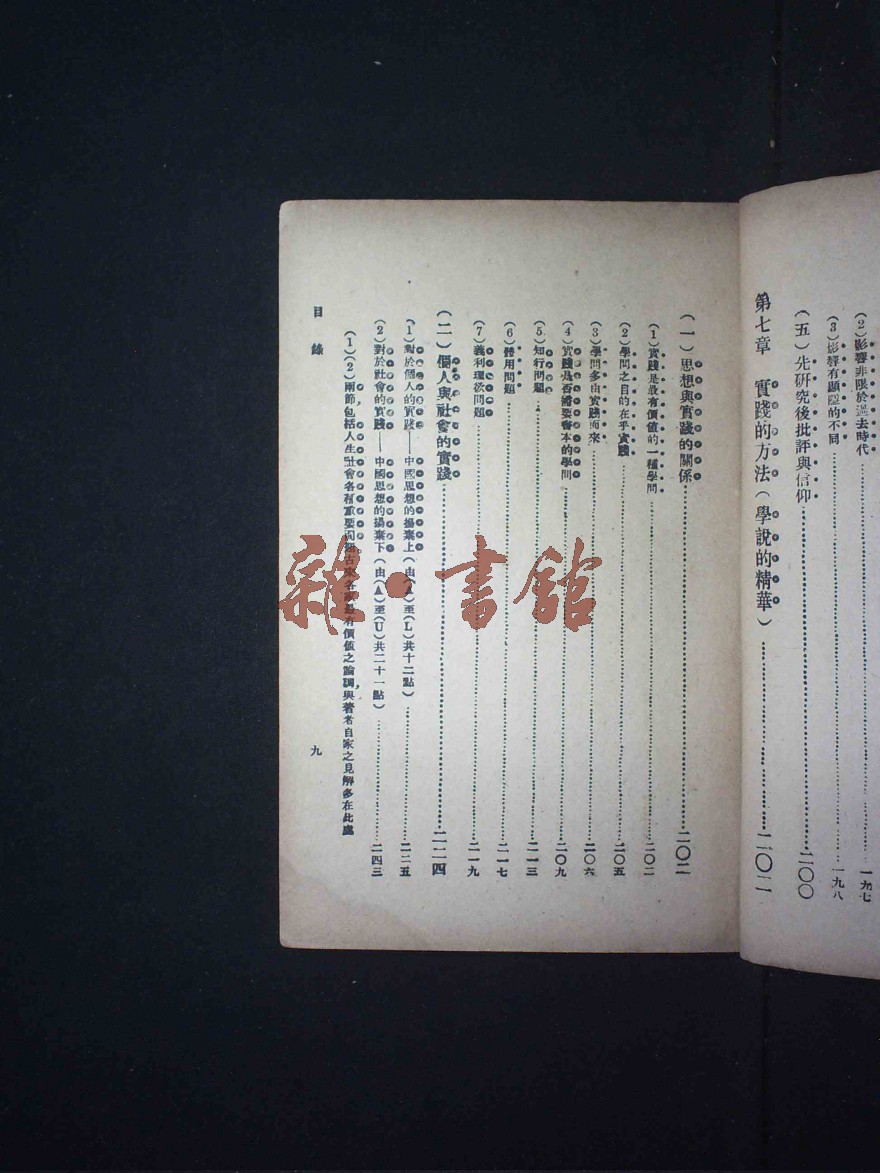 (2)影響非限於過去時代……一九七
(3)影響有顯隱的不同……一九八
(五)先研究後批評與信仰……二〇〇
第七章 實踐的方法(學說的精華)……二〇二
(一)思想與實踐的關係……二〇二
(1)實踐是最有價值的一種學問……二〇二
(2)學問之目的在乎實踐……二〇五
(3)學問多由實踐而來……二〇六
(4)實踐是否需要書本的學問……二〇九
(5)知行問題……二一三
(6)體用問題……二一七
(7)義利理欲問題……二一九
(二)個人與社會的實踐……二二四
(1)對於個人的實踐——中國思想的揚棄上(由(A)至(L)共十二點)……二二五
(2)對於社會的實踐——中國思想的揚棄下(由(A)至(U)共二十一點)……二四三
(1)(2)兩節包括人生社會各種重要問題古來各家最有價值之論調與著者自家之見解多在此處
目錄
九
雜·書館